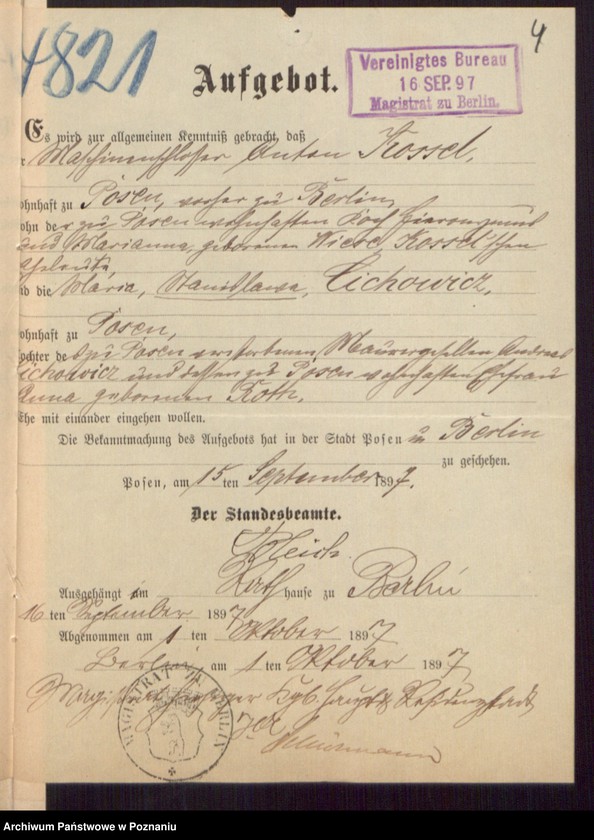 4821
4
Aufgebot.
Vereinigtes Bureau
16 SEP. 97
Magistrat zu Berlin.
Es wird zur allgemeinen Kenntniß gebracht, daß
Maschinenschlosser Anton Kossel,
ohnhaft zu Posen, vorher zu Berlin,
ohn der zu Posen wohnhaften Koch Hieronymus
und Marianna, geborenen Kossel'schen
Eheleute
d die Maria, Stanislawa, Cichowicz,
ohnhaft zu Posen,
ochter des zu Posen verstorbenen Maurergesellen Andreas
Cichowicz und dessen zu Posen wohnhaften Ehefrau
Anna geborenen Roth,
Ehe mit einander eingehen wollen.
Die Bekanntmachung des Aufgebots hat in der Stadt Posen u Berlin
zu geschehen.
Posen, am 15 ten September 1897.
Der Standesbeamte.
Ausgehängt am Rathhause zu Berlin
16 ten September 1897
Abgenommen am 1 ten Oktober 1897
Berlin, am 1 ten Oktober 1897
Magistrat hiesiger Kgl. Haupt u Residenzstadt
MAGISTRAT ZU BERLIN
Archiwum Państwowe w Poznaniu